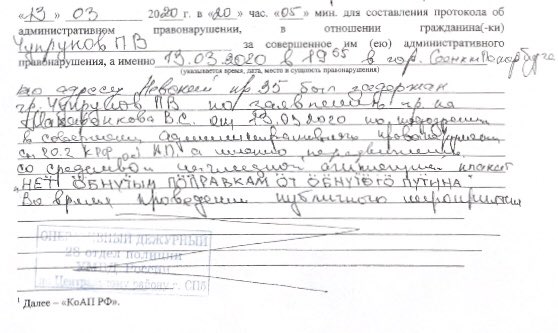 «13» 03 2020 г. в «20» час. «05» мин. для составления протокола об
административном правонарушении, в отношении гражданина(-ки)
Чупрунов ПВ за совершенное им (ею) административного
правонарушения, а именно 13.03.2020 в 19 05 в гор. Санкт-Петербурге
(указывается время, дата, место и сущность правонарушения)
по адресу Невский пр. 35 был задержан
гр. Чупрунов ПВ по заявлению гр. на
В.С. от 13.03.2020 по подозрению
в совершении административного правонарушения
ст 20.2 КРФ об АП а именно
со средством наглядной агитации плакат
"НЕТ! ÖБНУТЫМ ПÖПРАВКАМ ÖТ ÖБНУТÖГО ПУТИНА"
Во время проведения публичного мероприятия
ОПЕРАТИВНЫЙ ДЕЖУРНЫЙ
28 отдел полиции
УМВД России
по Центральному району г. СПб
¹ Далее – «КоАП РФ».